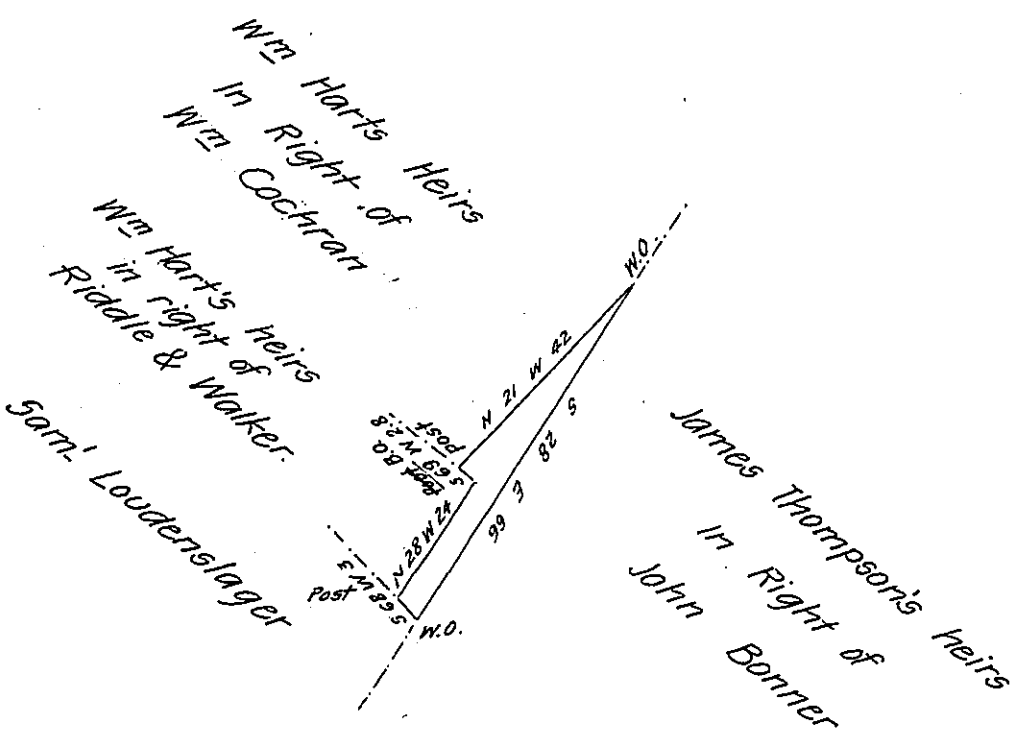 Wm Harts Heirs
In Right of
Wm Cochran
Wm Hart's heirs
in right of
Riddle & Walker.
Saml Loudenslager
W.O.
N 21 W 42
S 28 E 66
post
S.69 W 2.8
B.O.
N 28 W 24
S 68 W 3
Post
W.O.
James Thompson's heirs
In Right of
John Bonner